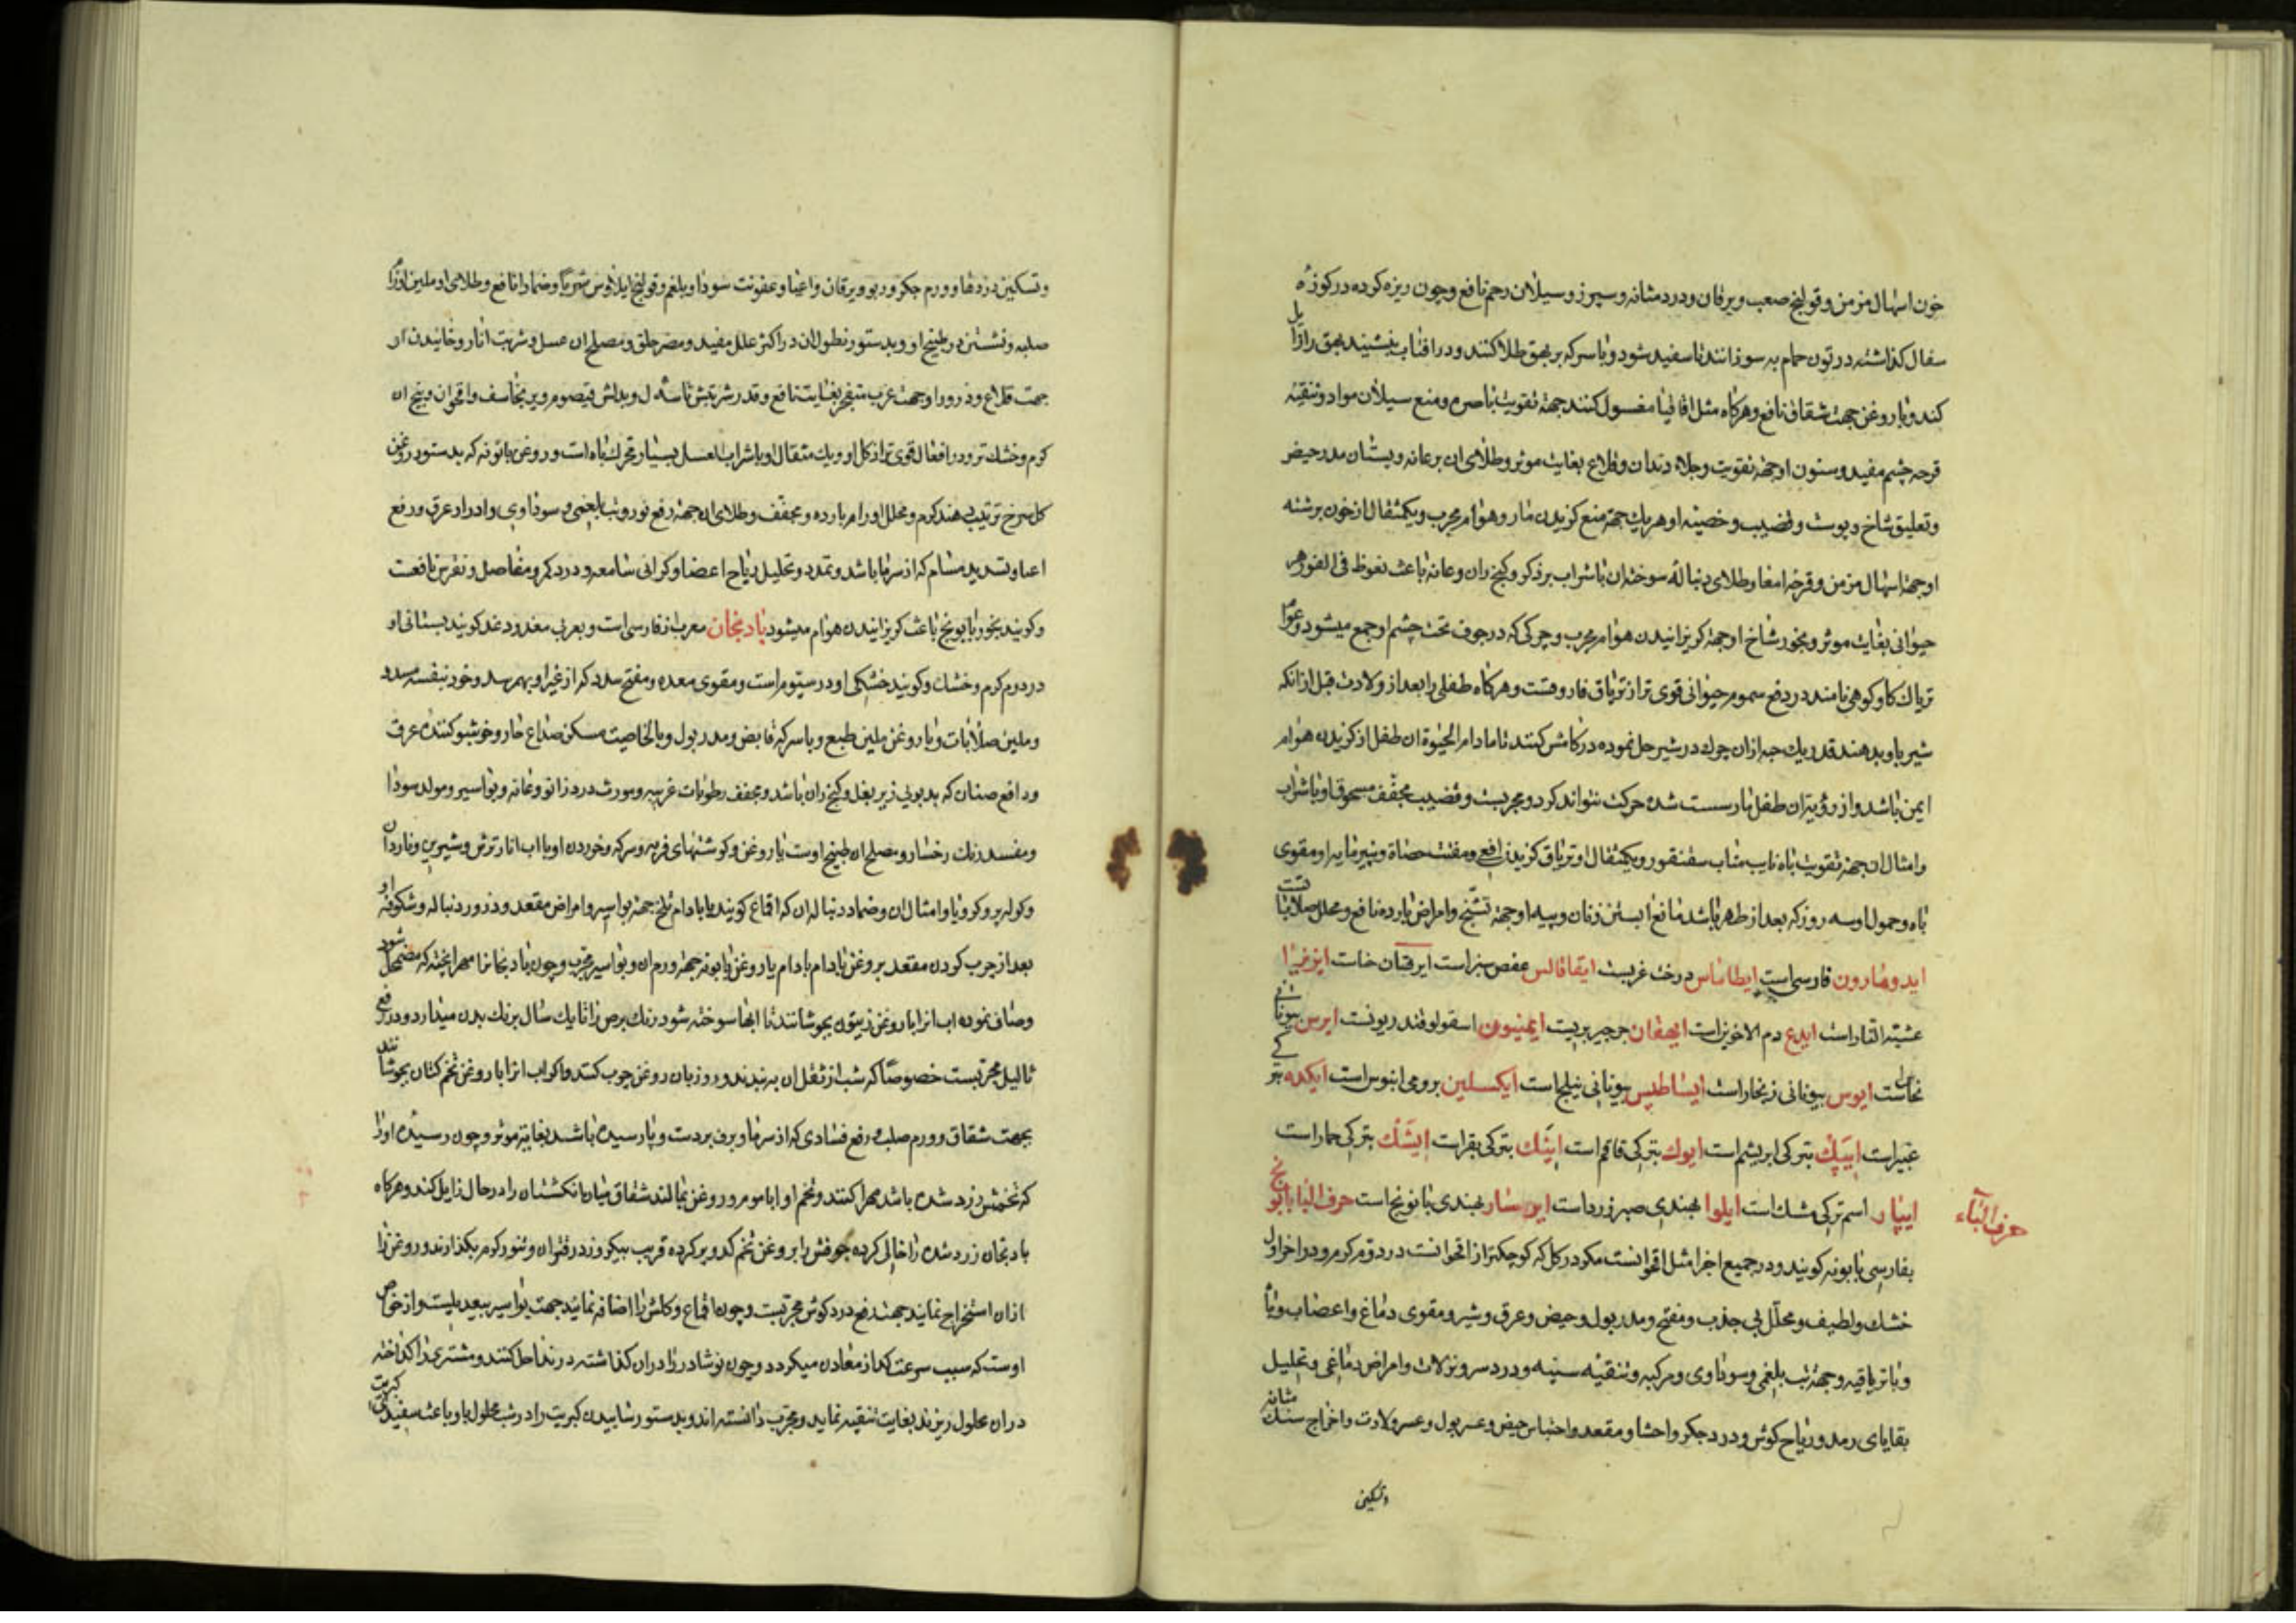 خون اسهال مزمن و قولنج صعب و یرقان و درد مثانه و سپرز و سیلان رحم نافع و چون ریزه کرده در کوزهٔ
سفال کذاشته در تون حمام به سوزانند تا سفید شود و با سرکه بر بهق طلا کنند و در افتاب بنشینند بهق را زایل
کند و با روغن جهت شقاق نافع و هرکاه مثل اقاقیا مغسول کنند جهة تقویت باصره و منع سیلان مواد و تنقیهٔ
قرحه چشم مفید و سنون او جهة تقویت و جلاء دندان و قلاع بغایت موثر و طلای ان بر عانه و پستان مدر حیض
و تعلیق شاخ و پوست و قضیب و خصیه او هریك جهة منع کزیدن مار و هوام مجرب و یکمثقال از خون برشته
او جهة اسهال مزمن و قرحه امعا و طلای دنباله سوخته ان با شراب بر ذکر و کنج ران و عانه باعث نعوظ فی الفور هر
حیوانی بغایت موثر و بخور شاخ او جهة کریزانیدن هوام مجرب و چرکی که در جوف تحت چشم او جمع میشود و عوام
تریاك کاو کوهی نامند در دفع سموم حیوانی قوی تر از تریاق فاروقست و هرکاه طفلی را بعد از ولادت قبل از انکه
شیر باو بدهند قدر یك حبه ازان چرك در شیر حل نموده در کامش کنند تا مادام الحیوة ان طفل از کزیدن هوام
ایمن باشد و از رؤیت ان طفل مار سست شده حرکت نتواند کرد و مجربست و قضیب مجفف مسحوق او با شراب
و امثال ان جهة تقویت باه نایب مناب سقنقور و یکمثقال او تریاق کزیدن افعی و مفتت حصاة و پنیر مایه او مقوی
باه و حمول او سه روز که بعد از طهر باشد مانع ابستن زنان و پیه او جهة تشنج و امراض بارده نافع و محلل صلابات است
ایدومارون فارسی است ایطاماس درخت غربست ایقاقالس عفص سبز است ایرقان حناست ایزغیرا
عشبته النار است ایدع دم الاخوین است ایهقان جرجیر بریست ایمنیون اسقولوقندریونست ایرس بیونانی
نحاس است ایوس بیونانی زنجار است ایساطیس بیونانی نیلج است ایکسلین برومی ابنوس است ایکده بترکی
غبیر است ایپك بترکی ابریشم است ایوك بترکی قاقم است اینك بترکی بقر است ایشك بترکی حمار است
ایپار اسم ترکی مشك است ایلوا بهندی صبر زرد است ایرسار بهندی بانونج است حرف الباء بابونج
حرف الباء
بفارسی بابونه کویند و در جمیع اجزا مثل اقحوانست مکر در کل که کوچکتر از اقحوانست در دوم کرم و در اخر اول
خشك و لطیف و محلل بی جذب و مفتح و مدر بول و حیض و عرق و شیر و مقوی دماغ و اعصاب و باه
و با تریاقیه و جهة تب بلغمی و سوداوی و مرکبه و تنقیه سینه و درد سر و نزلات و امراض دماغی و تحلیل
بقایای رمد و ریاح کوش و درد جکر و احشا و مقعد و احتباس حیض و عسر بول و عسر ولادت و اخراج سنك مثانه
وتسکین
و تسکین دردها و ورم جکر و ربو و یرقان و اعیا و عفونت سودا و بلغم و قولنج ایلاوس شربا و ضمادا نافع و طلای او ملین اورام
صلبه و نشستن در طبیخ او و بدستور نطول ان در اکثر علل مفید و مضر حلق و مصلح ان عسل و شربت انار و خائیدن ان
جهت قلاع و ذرور او جهت غرب منفجر بغایت نافع و قدر شربتش تا سه ل و بدلش قیصوم و برنجاسف و اقحوان و بیخ ان
کرم و خشك تر و در افعال قوی تر از کل او و یك مثقال او با شراب بعسل بسیار محرك باه است و روغن بابونه که بدستور روغن
کلسرخ ترتیب دهند کرم و محلل اورام بارده و مجفف و طلای ان جهة رفع نوروتب بلغمی و سوداوی و ادرار عرق و رفع
اعیا و تسدید مسام که از سرما باشد و تمدد و تحلیل ریاح اعضا و کرانی سامعه و درد کمر و مفاصل و نقرس نافعست
و کویند بخور بابونج باعث کریزانیدن هوام میشود بادنجان معرب از فارسی است و بعربی مغدود غد کویند بستانی او
در دوم کرم و خشك و کویند خشکی او در سیوم است و مقوی معده و مفتح سدد که از غیر او بهم رسد و خود بنفسه مسدد
و ملین صلابات و با روغن ملین طبع و با سرکه قابض و مدر بول و بالخاصیت مسکن صداع حار و خوشبو کننده عرق
و دافع صنان که بدبویی زیر بغل و کنج ران باشد و مجفف رطوبات غریبه و مورث درد زانو و عانه و بواسیر و مولد سودا
و مفسد رنك رخسار و مصلح ان طبیخ اوست با روغن و کوشتهای فربه و سرکه و خوردن او با اب انار ترش و شیرین و ناردان
و کولپر و کرویا و امثال ان و ضماد دنباله ان که اقماع کویند با بادام تلخ جهة بواسیر و امراض مقعد و ذرور دنباله و شکوفه او
بعد از چرب کردن مقعد بروغن بادام با روغن بابونه جهة ورم ان و بواسیر مجرب و چون بادنجانرا مهرا پخته که مضمحل شود
و صاف نموده اب انرا با روغن زیتون بجوشانند تا ابها سوخته شود رنك برص را تا یك سال برنك بدن میدارد و در رفع
ثالیل مجربست خصوصا که شب از ثفل ان به بندند و روز بان روغن چرب کنند و اکر اب انرا با روغن تخم کتان بجوشانند
بجهت شقاق و ورم صلب و رفع فسادی که از سرما و برف بر دست و پا رسیده باشد بغایت موثر و چون رسیده او را
که تخمش زرد شده باشد مهرا کنند و تخم او را با موم و روغن بمالند شقاق میان انکشتان را در حال زایل کند و هرکاه
بادنجان زرد شده را خالی کرده جوفش را بروغن تخم کدو پر کرده قریب بیکروز در فرن و تنور کرم بکذارند و روغن را
ازان استخراج نمایند جهت رفع درد کوش مجربست و چون اقماع و کلش را اضافه نمایند جهت بواسیر بیعدیلست و از خواص
اوست که سبب سرعت کداز معادن میکردد و چون نوشادر را دران کذاشته در ندا حل کنند و مشتری را کداخته
دران محلول ریزند بغایت تنقیه نماید و مجرب دانسته اند و بدستور سابیدن کبریت را در شب محلول باو باعث سفیدی کبریت